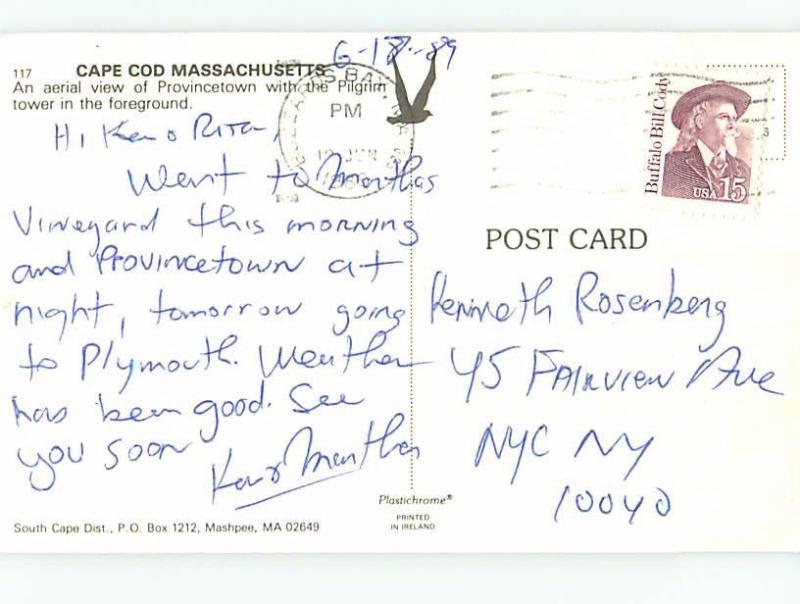 6-18-89
117 CAPE COD MASSACHUSETTS
An aerial view of Provincetown with the Pilgrim
tower in the foreground.
PM
JUN
Buffalo Bill Cody
USA 15
Hi Ken & Rita,
Went to Marthas
Vineyard this morning
and Provincetown at
night, tomorrow going
to Plymouth. Weather
has been good. See
you soon
Ken & Martha
POST CARD
Kenneth Rosenberg
45 Fairview Ave
NYC NY
10040
Plastichrome®
PRINTED
IN IRELAND
South Cape Dist., P.O. Box 1212, Mashpee, MA 02649